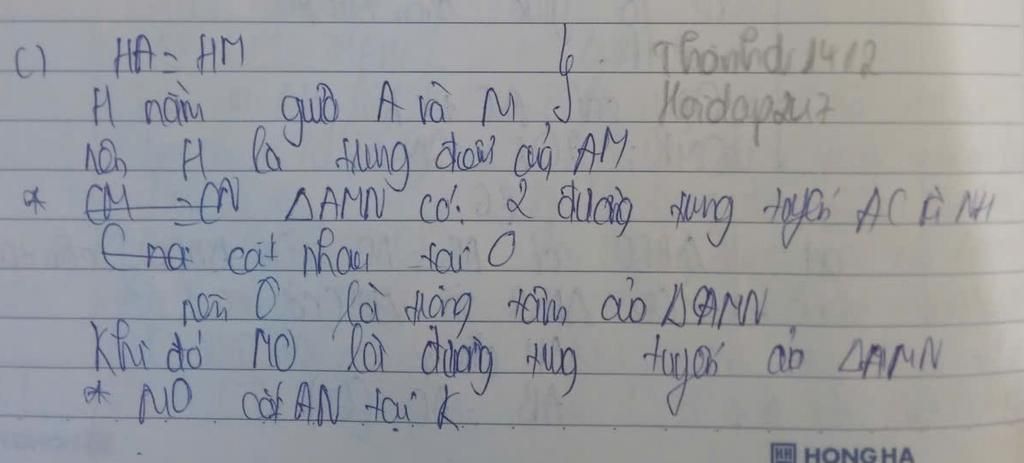 c) HA = HM
H nằm giữa A và M
nên H là trung điểm của AM
* CM = CN ΔAMN có: 2 đường trung tuyến AC và NH
cắt nhau tại O
nên O là trọng tâm của ΔAMN
Khi đó MO là đường trung tuyến của ΔAMN
* MO cắt AN tại K
Thanhdz1412
Hoidap247
HH HONG HA